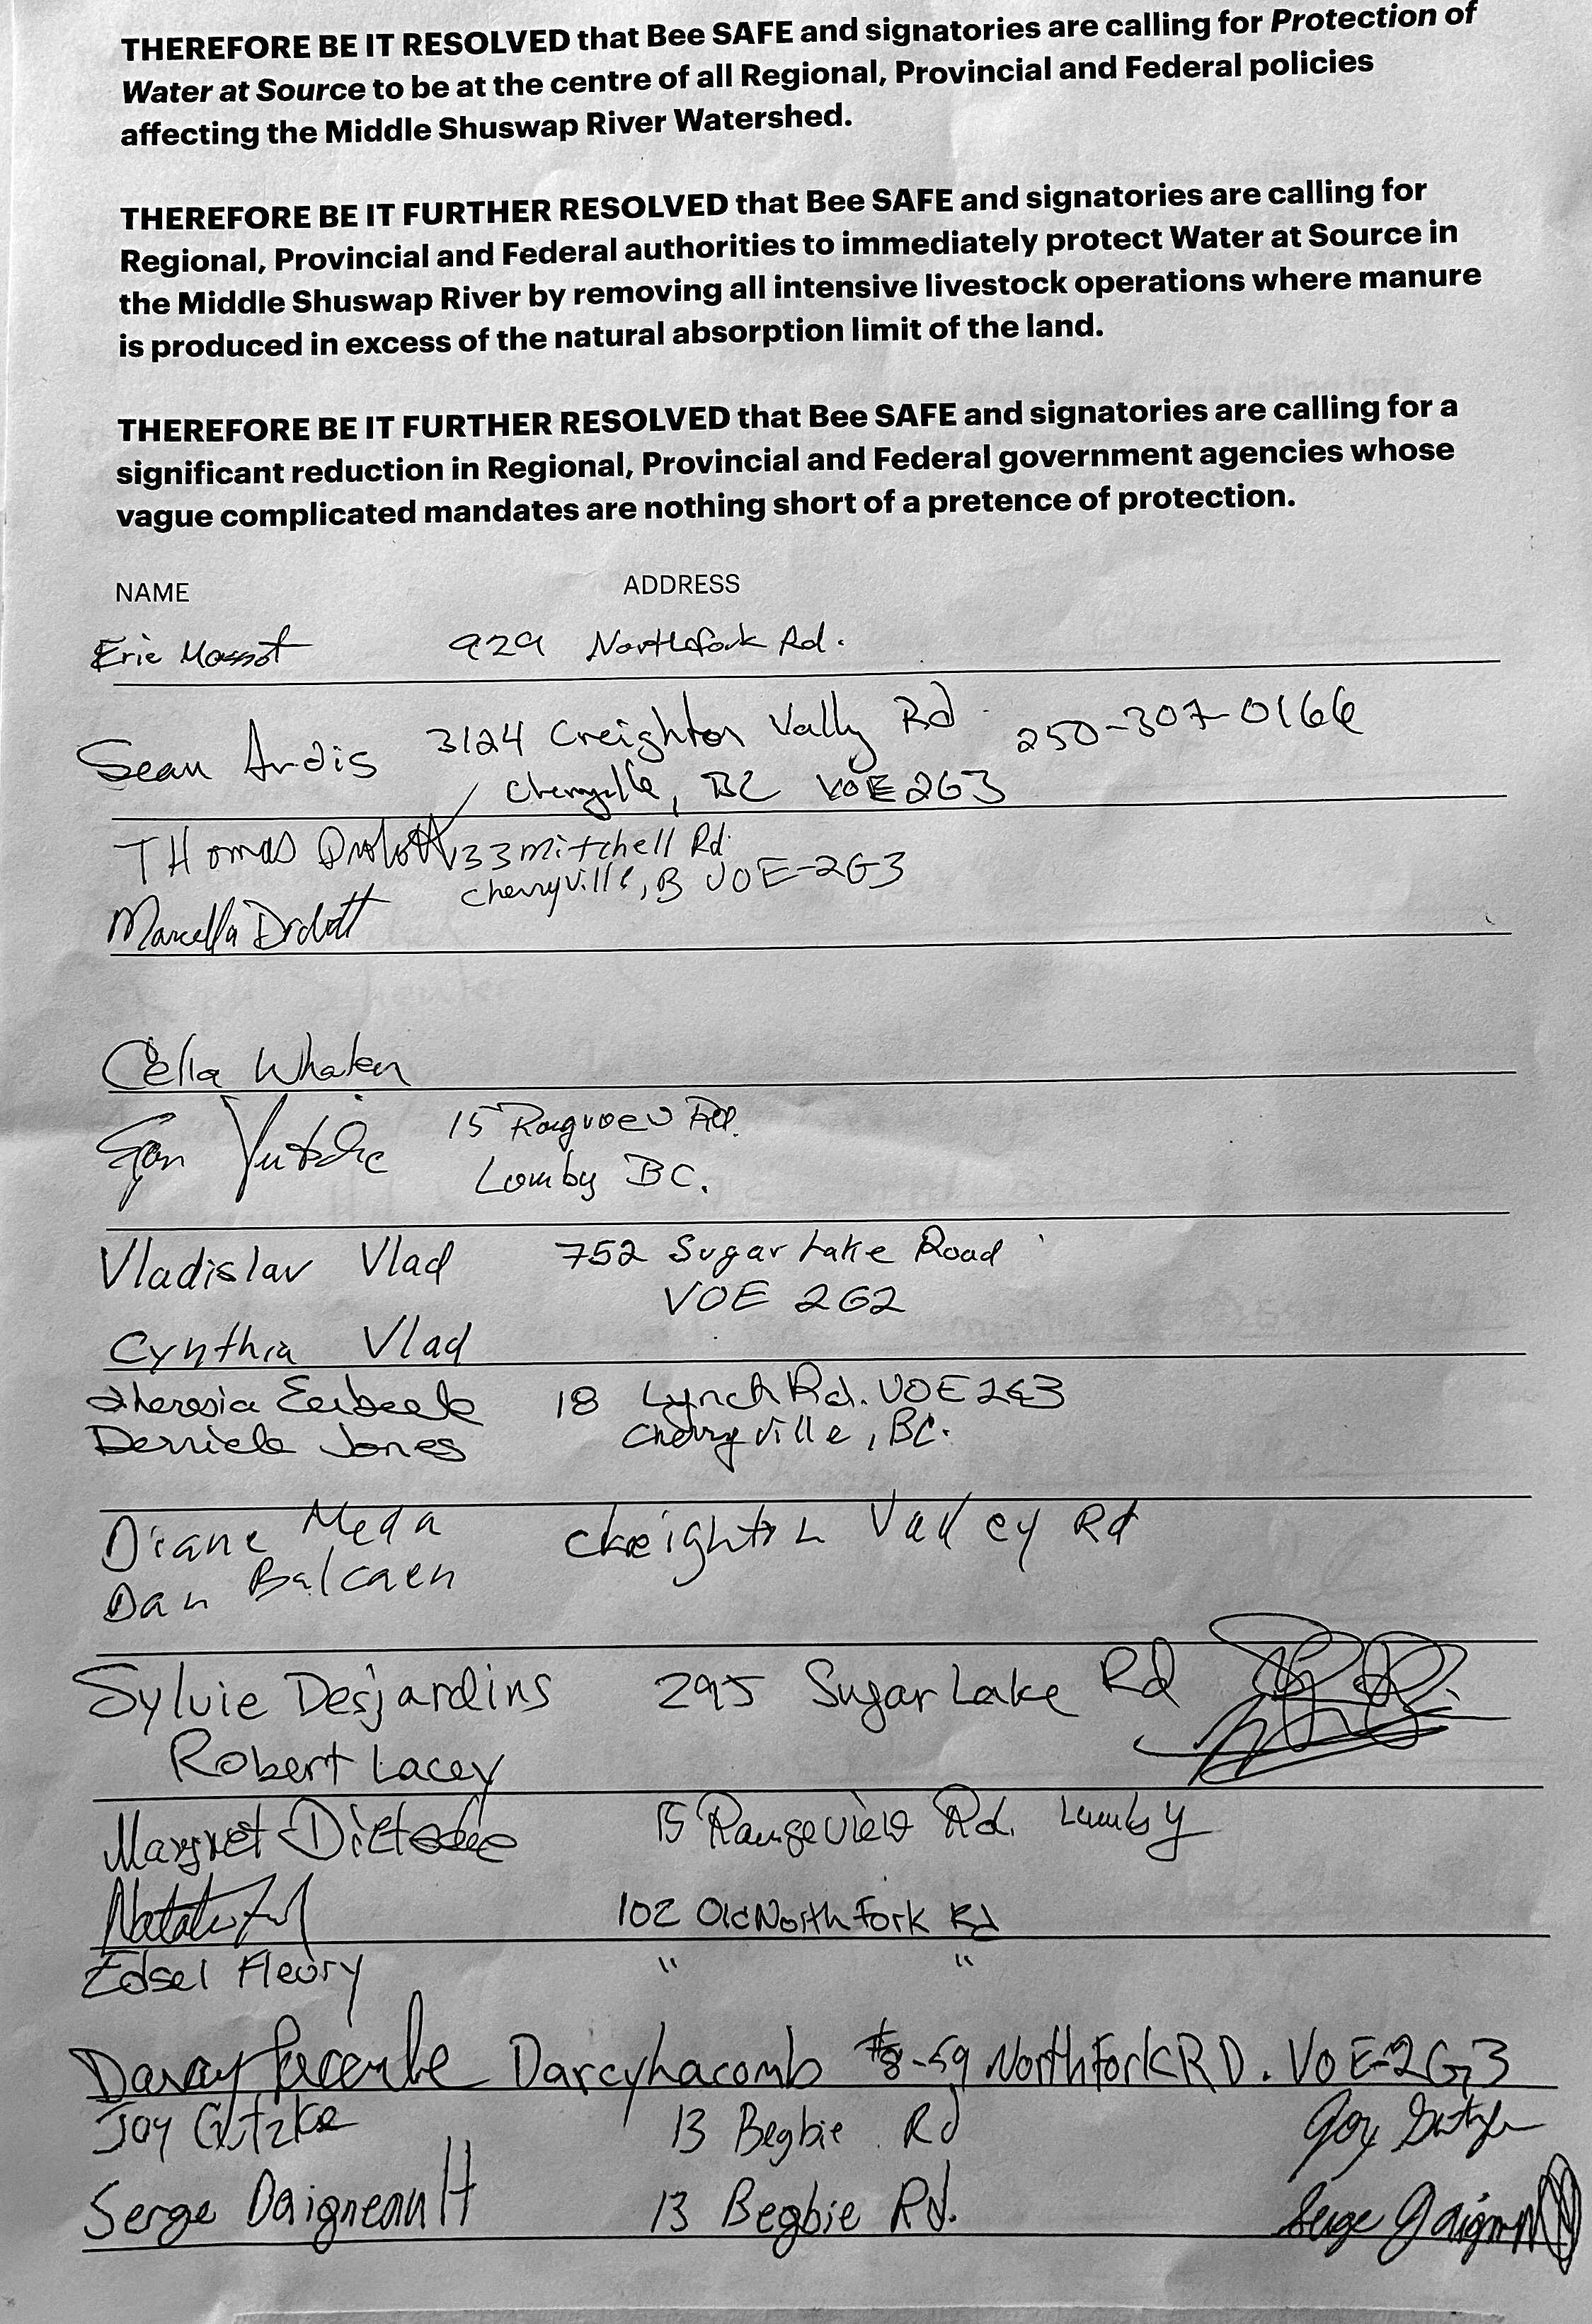 THEREFORE BE IT RESOLVED that Bee SAFE and signatories are calling for Protection of
Water at Source to be at the centre of all Regional, Provincial and Federal policies
affecting the Middle Shuswap River Watershed.
THEREFORE BE IT FURTHER RESOLVED that Bee SAFE and signatories are calling for
Regional, Provincial and Federal authorities to immediately protect Water at Source in
the Middle Shuswap River by removing all intensive livestock operations where manure
is produced in excess of the natural absorption limit of the land.
THEREFORE BE IT FURTHER RESOLVED that Bee SAFE and signatories are calling for a
significant reduction in Regional, Provincial and Federal government agencies whose
vague complicated mandates are nothing short of a pretence of protection.
NAME ADDRESS
Eric 929 Northfork Rd.
Sean Ardis 3124 Creighton Vally Rd 250-307-0166
Cherryville, BC V0E 2G3
THomas 133 Mitchell Rd.
Cherryville, B V0E-2G3
Marcella
Celia Whalen
15 Rd.
Lumby BC.
Vladislav Vlad 752 Sugar Lake Road
V0E 2G2
Cynthia Vlad
Theresia 18 Lynch Rd. V0E 2G3
Derriele Jones Cherryville, BC.
Diane Meda Creighton Valley Rd
Dan Balcaen
Sylvie Desjardins 295 Sugar Lake Rd
Robert Lacey
Margret 15 Rangeview Rd. Lumby
102 Old North Fork Rd
Edsel Fleury " "
Darcy Darcy Lacomb #8-59 North Fork RD. V0E-2G3
Joy Gutzke 13 Begbie Rd Joy
Serge Daigneault 13 Begbie Rd. Serge